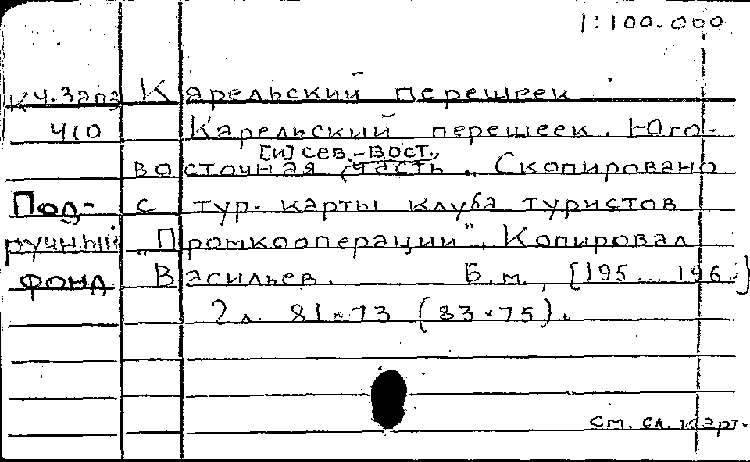 1:100.000
Карельский перешеек
К4.3808
410
Карельский перешеек. Юго-
[и] сев.-вост.,
восточная часть. Скопировано
Под-
с тур. карты клуба туристов
ручный
„Промкооперации". Копировал
фонд
Васильев. Б.м., [195 196 ]
2 л. 81×73 (83×75).
см. сл. карт.